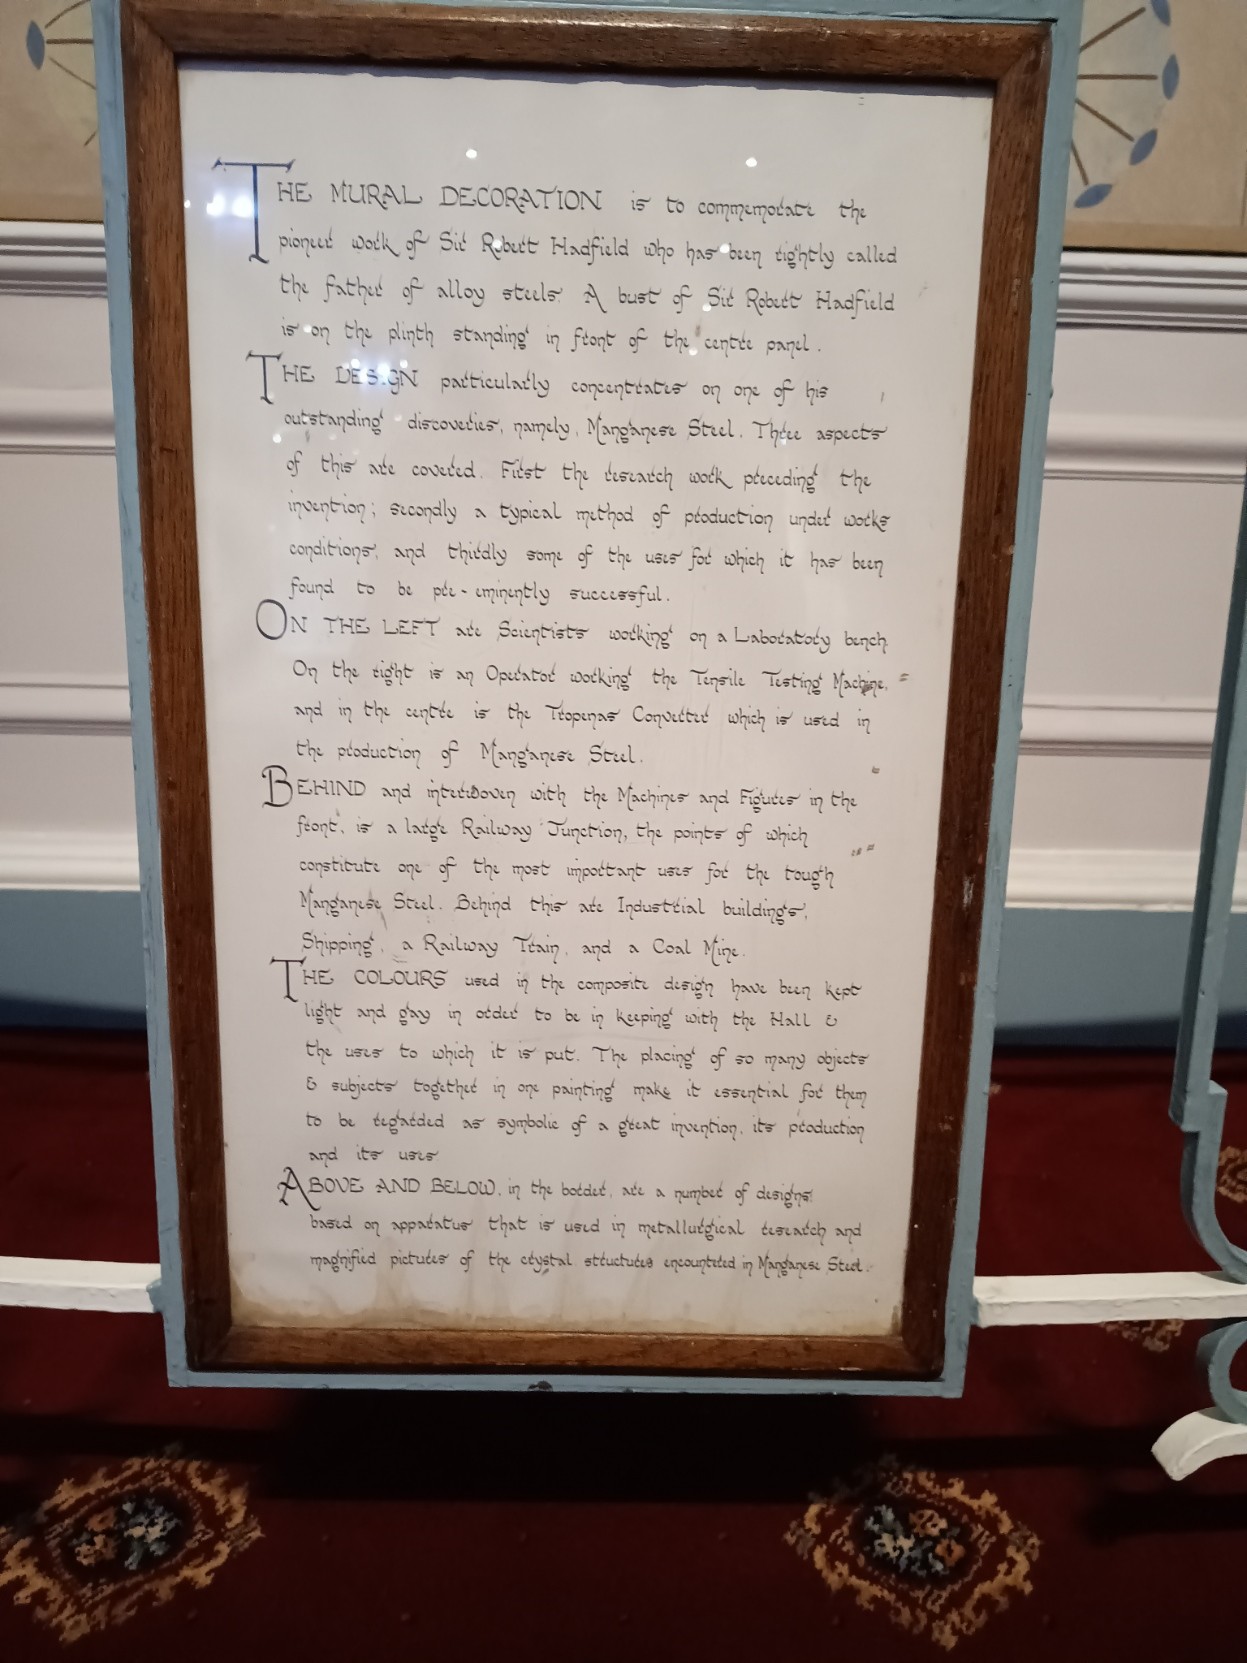 THE MURAL DECORATION is to commemorate the
pioneer work of Sir Robert Hadfield who has been rightly called
the father of alloy steels. A bust of Sir Robert Hadfield
is on the plinth standing in front of the centre panel.
THE DESIGN particularly concentrates on one of his
outstanding discoveries, namely, Manganese Steel. Three aspects
of this are covered. First the research work preceding the
invention; secondly a typical method of production under works
conditions, and thirdly some of the uses for which it has been
found to be pre-eminently successful.
ON THE LEFT are Scientists working on a Laboratory bench.
On the right is an Operator working the Tensile Testing Machine,
and in the centre is the Tropenas Converter which is used in
the production of Manganese Steel.
BEHIND and interwoven with the Machines and Figures in the
front, is a large Railway Junction, the points of which
constitute one of the most important uses for the tough
Manganese Steel. Behind this are Industrial buildings,
Shipping, a Railway Train, and a Coal Mine.
THE COLOURS used in the composite design have been kept
light and gay in order to be in keeping with the Hall &
the uses to which it is put. The placing of so many objects
& subjects together in one painting make it essential for them
to be regarded as symbolic of a great invention, its production
and its uses
ABOVE AND BELOW, in the border, are a number of designs
based on apparatus that is used in metallurgical research and
magnified pictures of the crystal structures encountered in Manganese Steel.